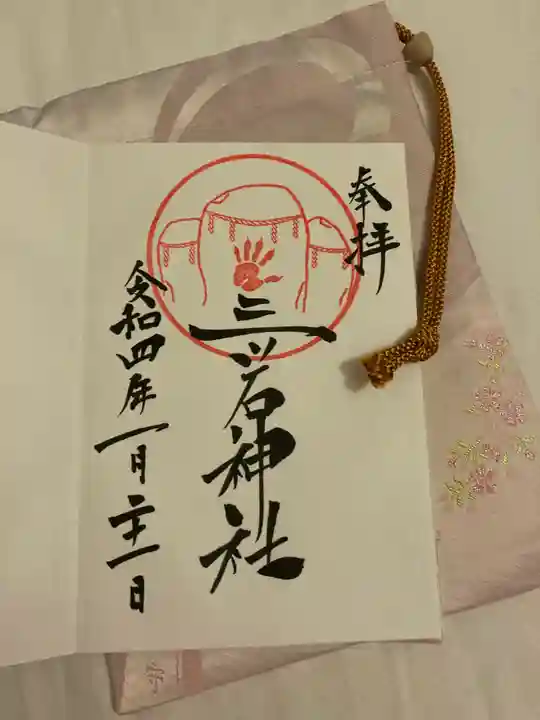 奉拝
三ツ石神社
令和四年一月二十一日